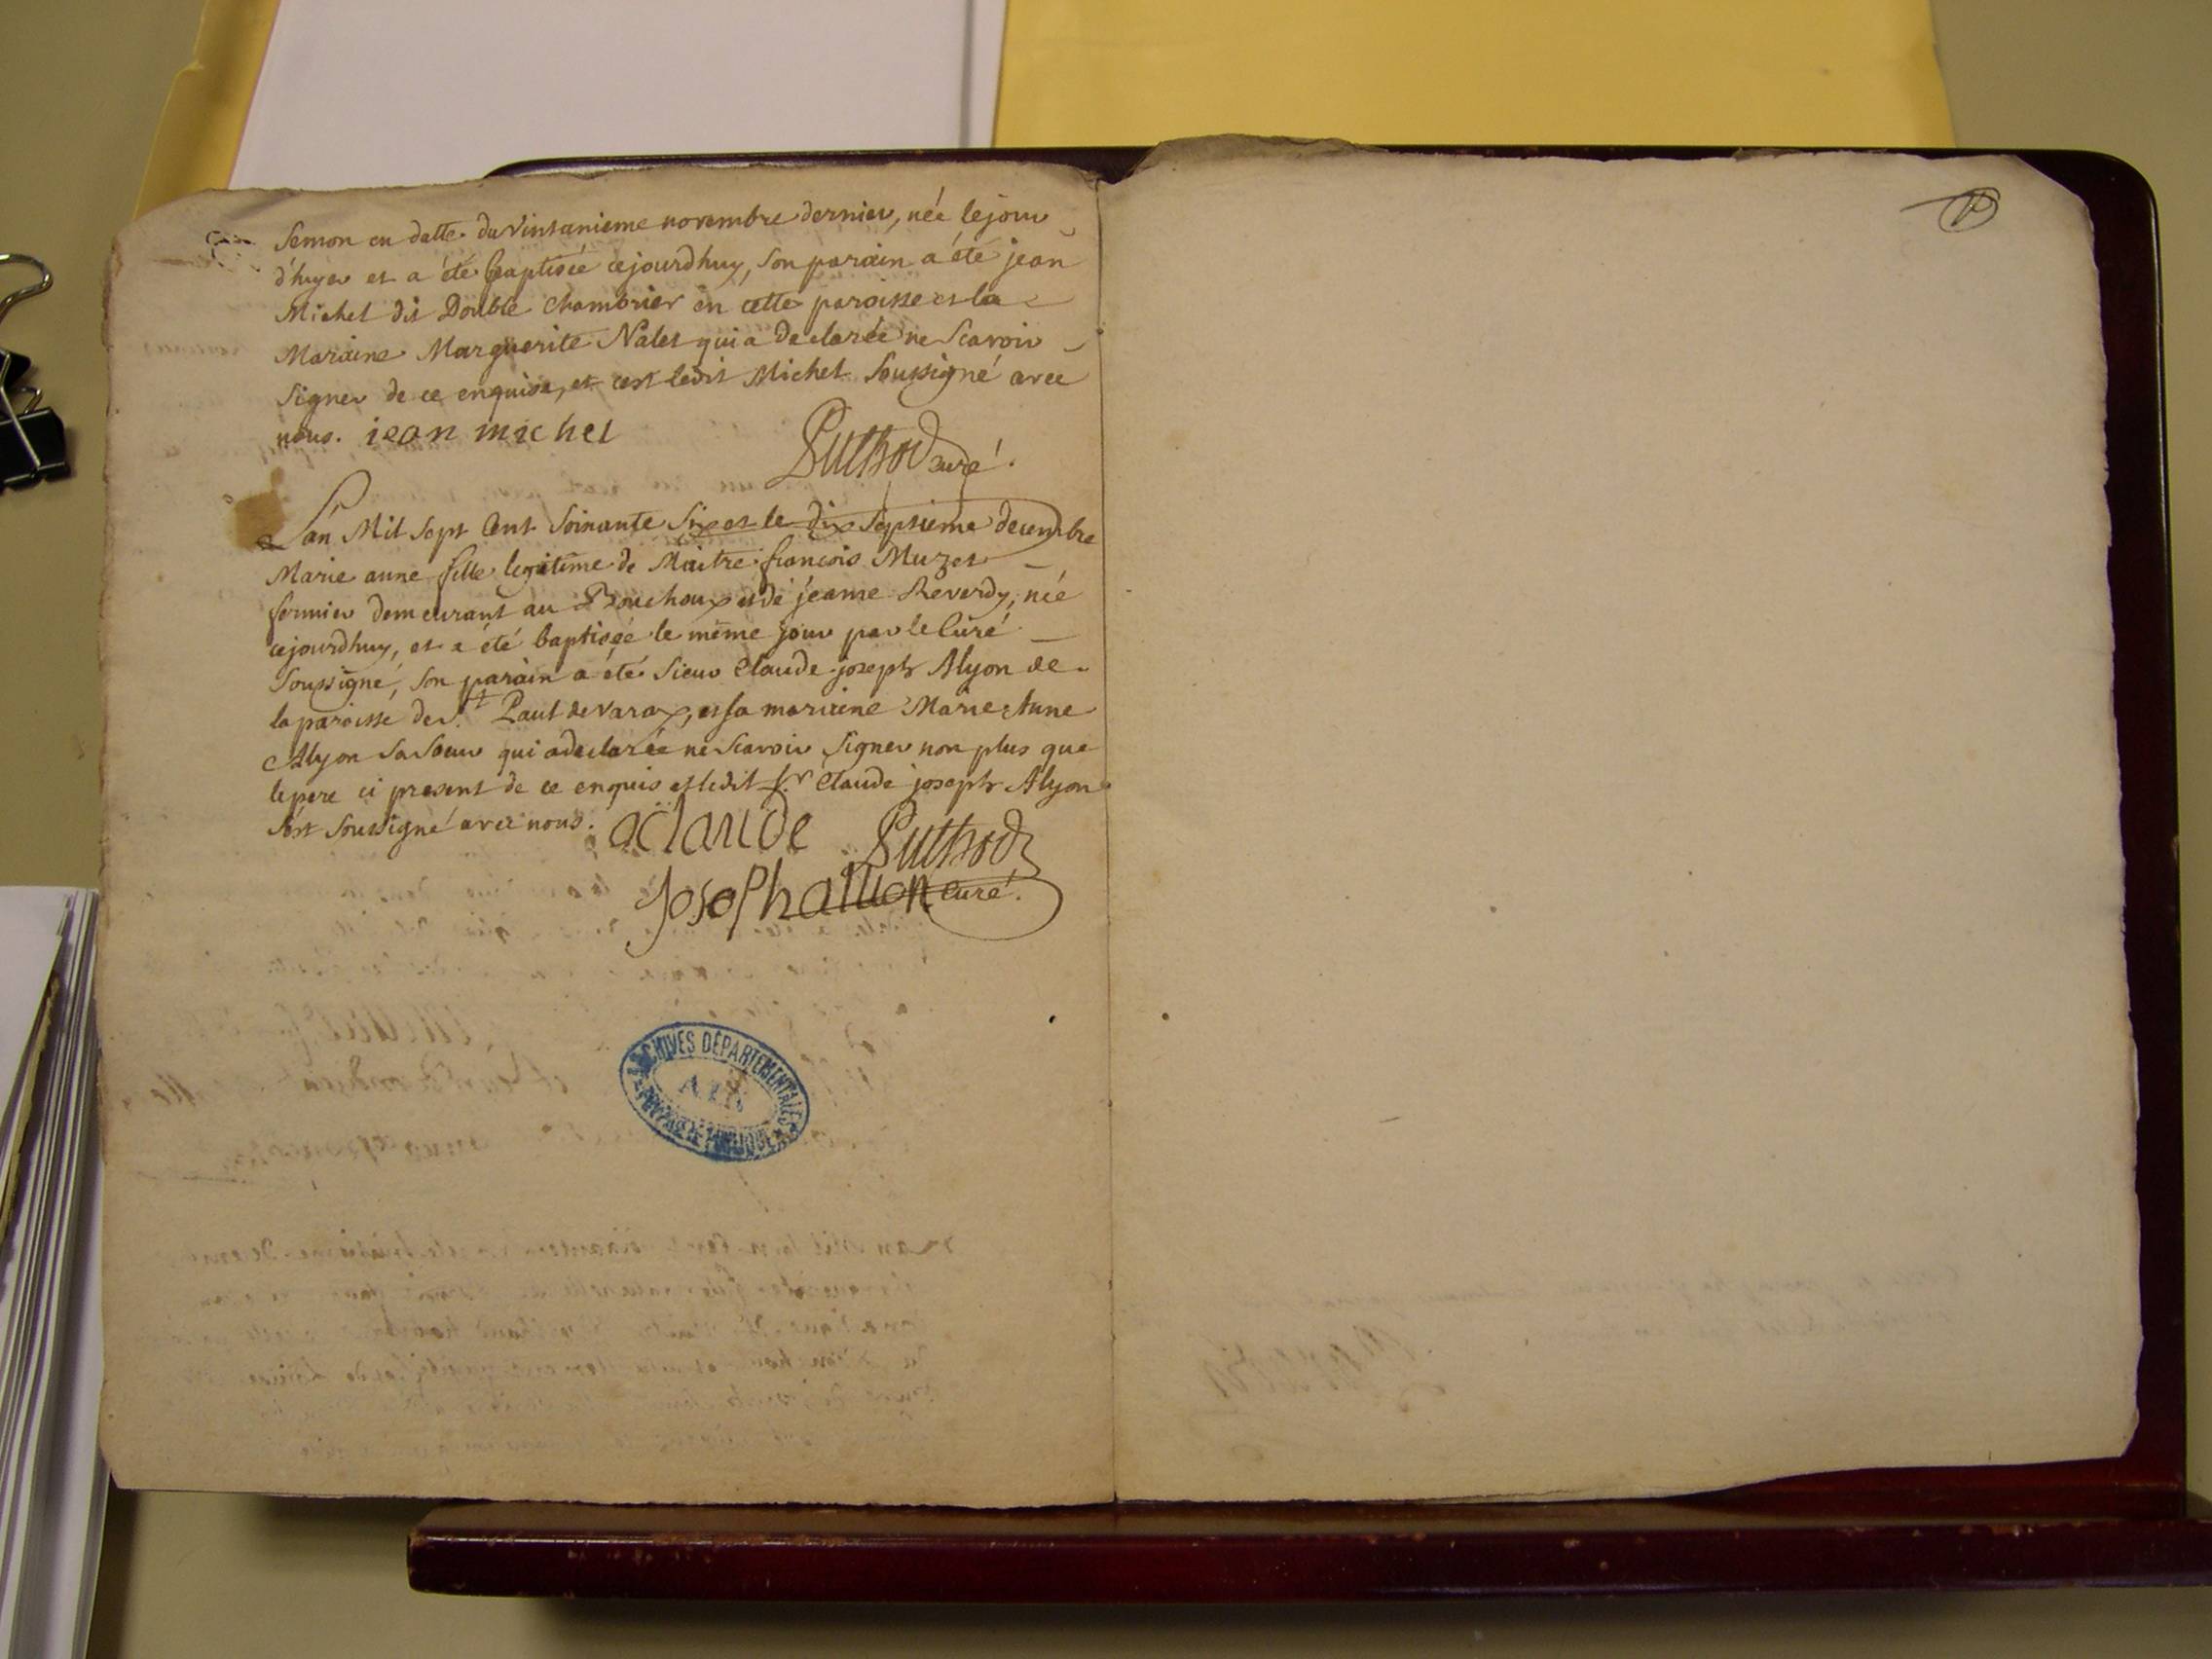 Semon en datte du vintanieme novembre dernier, née le jour
d'huyer et a été baptisée cejourdhuy, son parain a été jean
Michel dit Double chambrier en cette paroisse et la
Maraine Marguerite Nalet qui a declarée ne Scavoir
Signer de ce enquise, et c'est ledit Michel Soussigné avec
nous. jean michel
Puthod curé.
L'an Mil Sept Cent Soixante Six et le dix Septieme decembre
Marie anne fille legitime de Maitre francois Muzet
fermier demeurant au Bouchoux et de jeanne Reverdy, née
cejourdhuy, et a été baptisée le même jour par le Curé
Soussigné, Son parain a été Sieur Claude joseph Alyon de
la paroisse de St. Paul de Varax, et sa maraine Marie Anne
Alyon Sa Soeur qui a declarée ne Scavoir Signer non plus que
le pere ci present de ce enquis et ledit Sr. Claude joseph Alyon
s'est Soussigné avec nous. aclaude Puthod
Joseph allion curé.
ARCHIVES DÉPARTEMENTALES
AIN
PROPRIÉTÉ PUBLIQUE